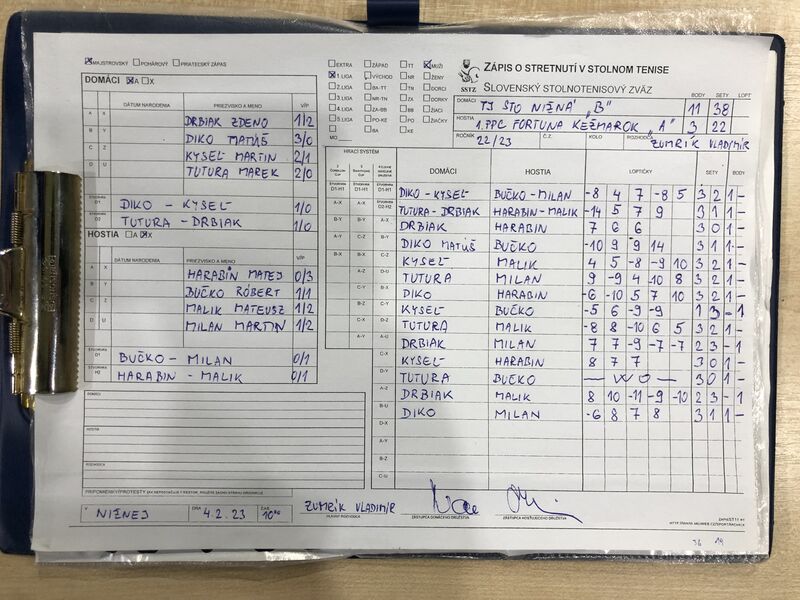 MAJSTROVSKÝ POHÁROVÝ PRIATEĽSKÝ ZÁPAS
DOMÁCI A X
DÁTUM NARODENIA PRIEZVISKO A MENO V/P
A X DRBIAK ZDENO 1/2
B Y DIKO MATÚŠ 3/0
C Z KYSEĽ MARTIN 2/1
D U TUTURA MAREK 2/0
ŠTVORHRA D1 DIKO - KYSEĽ 1/0
ŠTVORHRA D2 TUTURA - DRBIAK 1/0
HOSTIA A X
DÁTUM NARODENIA PRIEZVISKO A MENO V/P
A X HARABIN MATEJ 0/3
B Y BUČKO RÓBERT 1/1
C Z MALIK MATEUSZ 1/2
D U MILAN MARTIN 1/2
ŠTVORHRA D1 BUČKO - MILAN 0/1
ŠTVORHRA H2 HARABIN - MALIK 0/1
DOMÁCI
HOSTIA
ROZHODCA
PRIPOMIENKY/PROTESTY
V NIŽNEJ DŇA 4.2.23 ZAČ. 10
EXTRA ZÁPAD TT MUŽI
1.LIGA VÝCHOD NR ŽENY
2.LIGA BA-TT TN DORCI
3.LIGA NR-TN ZA DORKY
4.LIGA ZA-BB BB ŽIACI
5.LIGA PO-KE PO ŽIAČKY
BA KE
MO
SSTZ
ZÁPIS O STRETNUTÍ V STOLNOM TENISE
SLOVENSKÝ STOLNOTENISOVÝ ZVÄZ
BODY SETY LOPT
DOMÁCI TJ STO NIŽNÁ "B" 11 38
HOSTIA 1.PPC FORTUNA KEŽMAROK "A" 3 22
ROČNÍK 22/23 Č.Z. KOLO ROZHODCA ZUMRÍK VLADIMÍR
HRACÍ SYSTÉM
DOMÁCI HOSTIA LOPTIČKY SETY BODY
DIKO - KYSEĽ BUČKO - MILAN -8 4 7 -8 5 3 2 1 -
TUTURA - DRBIAK HARABIN - MALIK -14 5 7 9 3 1 1 -
DRBIAK HARABIN 7 6 6 3 0 1 -
DIKO MATÚŠ BUČKO -10 9 9 14 3 1 1 -
KYSEĽ MALIK 4 5 -8 -9 10 3 2 1 -
TUTURA MILAN 9 -9 4 10 8 3 2 1 -
DIKO HARABIN -6 -10 5 7 10 3 2 1 -
KYSEĽ BUČKO -5 6 -9 -9 1 3 - 1
TUTURA MALIK -8 8 -10 6 5 3 2 1 -
DRBIAK MILAN 7 7 -9 -7 -7 2 3 - 1
KYSEĽ HARABIN 8 7 7 3 0 1 -
TUTURA BUČKO — WO — 3 0 1 -
DRBIAK MALIK 8 10 -11 -9 -10 2 3 - 1
DIKO MILAN -6 8 7 8 3 1 1 -
ZUMRÍK VLADIMÍR
HLAVNÝ ROZHODCA ZÁSTUPCA DOMÁCEHO DRUŽSTVA ZÁSTUPCA HOSŤUJÚCEHO DRUŽSTVA